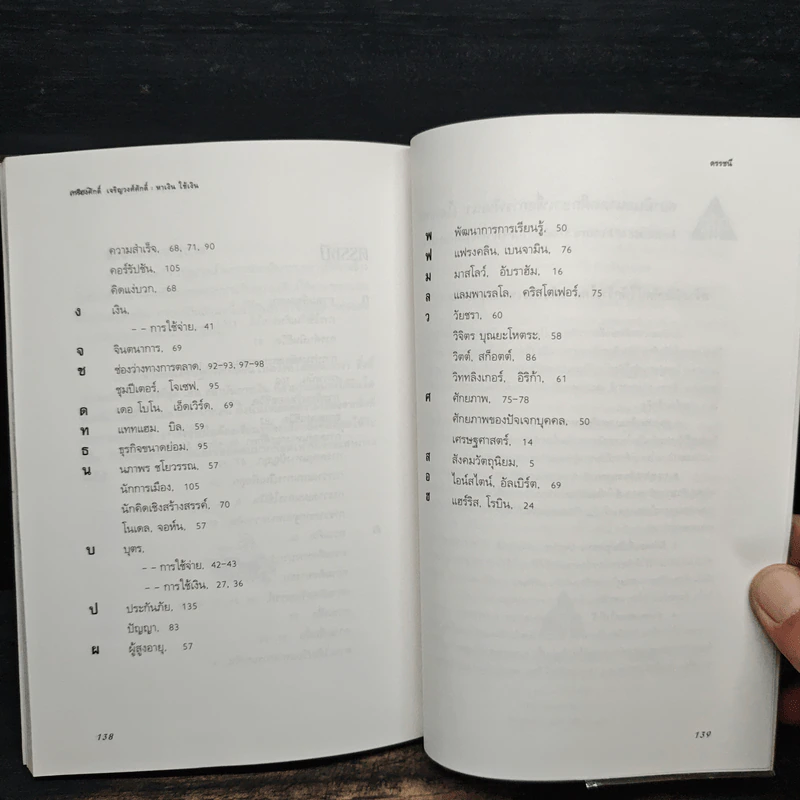 เกรียงศักดิ์ เจริญวงศ์ศักดิ์ : หาเงิน ใช้เงิน
ความสำเร็จ, 68, 71, 90
คอร์รัปชัน, 105
คิดแง่บวก, 68
ง เงิน,
-- การใช้จ่าย, 41
จ จินตนาการ, 69
ช ช่องว่างทางการตลาด, 92-93, 97-98
ชุมปีเตอร์, โจเซฟ, 95
ด เดอ โบโน, เอ็ดเวิร์ด, 69
ท แททแฮม, บิล, 59
ธ ธุรกิจขนาดย่อม, 95
น นภาพร ชโยวรรณ, 57
นักการเมือง, 105
นักคิดเชิงสร้างสรรค์, 70
โนเดล, จอห์น, 57
บ บุตร,
-- การใช้จ่าย, 42-43
-- การใช้เงิน, 27, 36
ป ประกันภัย, 135
ปัญญา, 83
ผ ผู้สูงอายุ, 57
138
ดรรชนี
พ พัฒนาการการเรียนรู้, 50
ฟ แฟรงคลิน, เบนจามิน, 76
ม มาสโลว์, อับราฮัม, 16
ล แลมพาเรลโล, คริสโตเฟอร์, 75
ว วัยชรา, 60
วิจิตร บุณยะโหตระ, 58
วิตต์, สก็อตต์, 86
วิททลิงเกอร์, อิริก้า, 61
ศ ศักยภาพ, 75-78
ศักยภาพของปัจเจกบุคคล, 50
เศรษฐศาสตร์, 14
ส สังคมวัตถุนิยม, 5
อ ไอน์สไตน์, อัลเบิร์ต, 69
ฮ แฮร์ริส, โรบิน, 24
139